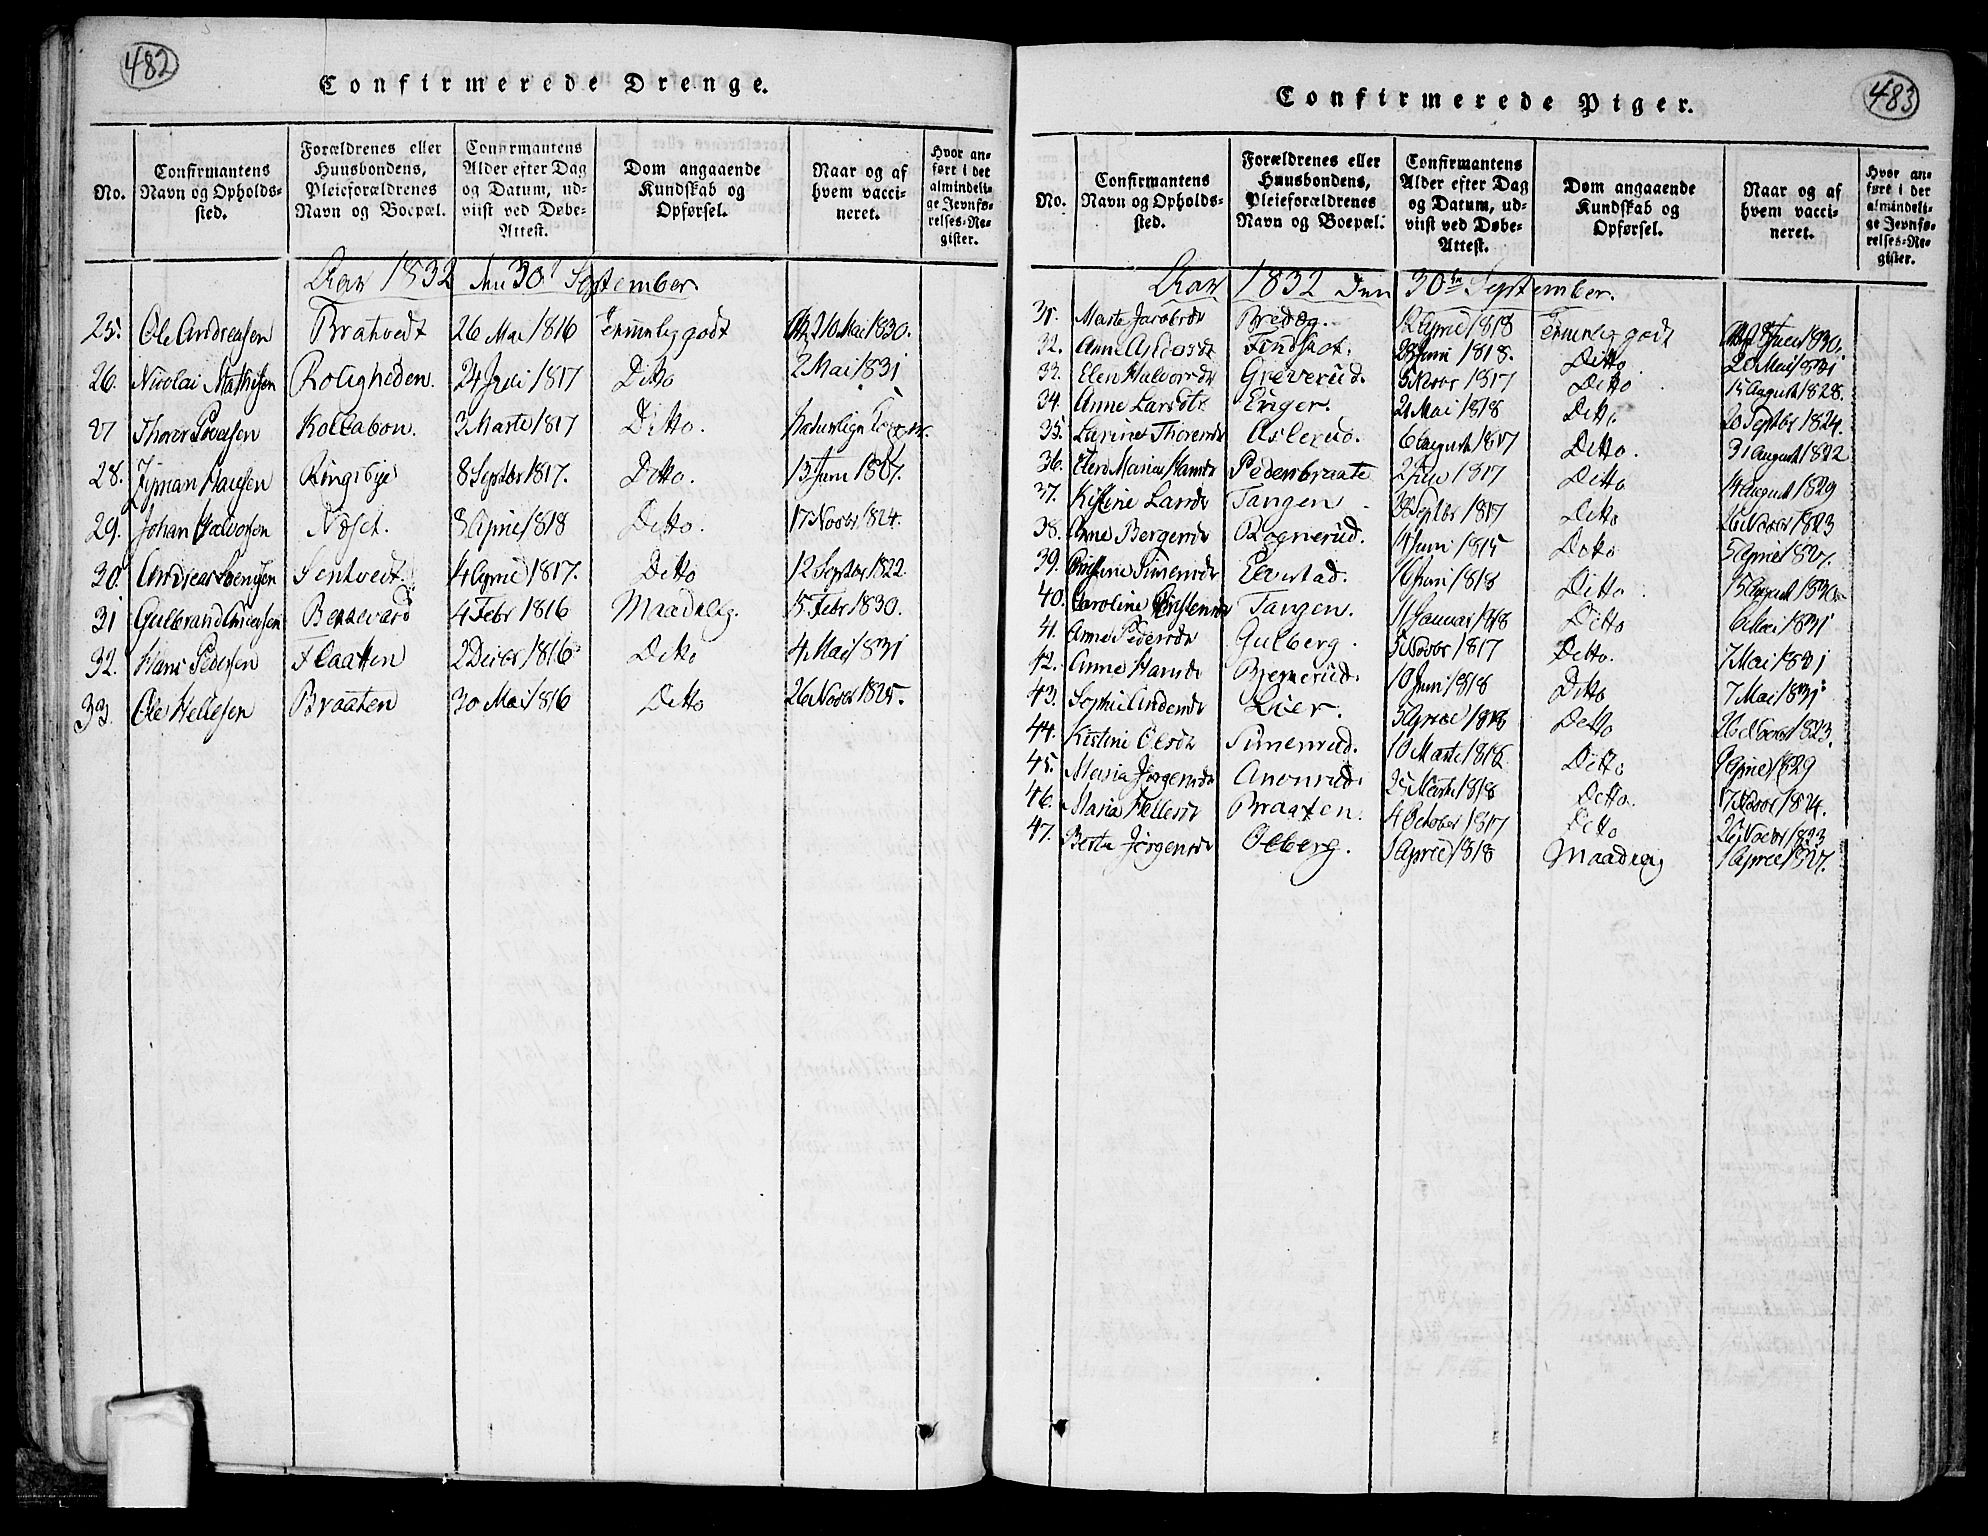 482
Confirmerede Drenge.
No.
Confirmantens Navn og Opholds-sted.
Forældrenes eller Huusbondens, Pleieforældrenes Navn og Boepæl.
Confirmantens Alder efter Dag og Datum, ud-viist ved Døbe-Attest.
Dom angaaende Kundskab og Opførsel.
Naar og af hvem vacci-neret.
Hvor an-ført i det almindeli-ge Jevnfø-relses-Re-gister.
Aar 1832 den 30 September
25. Ole Andreasen Brahvedt 26 Mai 1816 Temmelig godt 26 Mai 1830.
26. Nicolai Mathisen Roligheden. 24 Juli 1817 Ditto 2 Mai 1831
27 Thorer Kollabon. 3 Marts 1817 Ditto. Naturlige
28. Hansen Ringsbye 8 Septbr 1817. Ditto. 13 Juni
29. Johan Halvorsen Næset. 3 April 1818 Ditto. 17 Novbr 1824.
30. Andreas 4 April 1817. Ditto 12 Septbr 1822
31 Gulbrand Andersen 4 Febr 1816 Maadelig. 5 Febr 1830.
32. Hans Pedersen Flaatten 2 Decbr 1816 Ditto 4 Mai 1831
33. Ole Hellesen Braaten 30 Mai 1816 Ditto 26 Novbr 1825.
483
Confirmerede Piger.
No.
Confirmantens Navn og Opholds-sted.
Forældrenes eller Huusbondens, Pleieforældrenes Navn og Boepæl.
Confirmantens Alder efter Dag og Datum, ud-viist ved Døbe-Attest.
Dom angaaende Kundskab og Opførsel.
Naar og af hvem vacci-neret.
Hvor an-ført i det almindeli-ge Jevnfø-relses-Re-gister.
Aar 1832 den 30te September.
Marte Jacobsdr 12 April 1818 Temmelig godt 1830.
32. Anne Juni 1818. Ditto 20 Mai 1831
33. Elen Halvorsdr Greverud. Novbr 1817 Ditto 15 August 1828.
34. Anne Larsdtr Enger. 21 Mai 1818 Ditto 20 Septbr 1824.
35. Larine Thorensdr Aslerud. 6 August 1817 Ditto. 31 August 1822
36. Elen Maria Hansdr Pedersbraate 1817 Ditto 14 August 1829
37. Kistine Larsdr Tangen. Septbr 1817 Ditto 26 Novbr 1823
38. Anne Bergersdr Rognerud. Juni 1815 Ditto 5 April
39. Simensdr Elvestad. 16 Juni 1818 Ditto 15 August 1830
40. Caroline Tangen. 11 Januar 1818 Ditto Mai 1831
41. Anne Pedersdr Gulberg. 5 Novbr 1817 Ditto. 7 Mai 1831
42. Anne Hansdr Bjerkerud. 10 Juni 1818 Ditto 7 Mai 1831
43. Sophie Andersdr Lier. 5 April 1818 Ditto 26 Novbr 1823.
44. Kistine Olsdr Simenrud. 10 Marts 1818 Ditto 9 April 1829
45. Maria Jørgensdr 25 Marts 1818 Ditto. 17 Novbr 1824.
46. Maria Hellesdr Braaten. 4 October 1817 Ditto 26 Novbr 1823
47. Berte Jørgensdr Oeberg. 1 April 1818 Maadelig 1 April 1827.